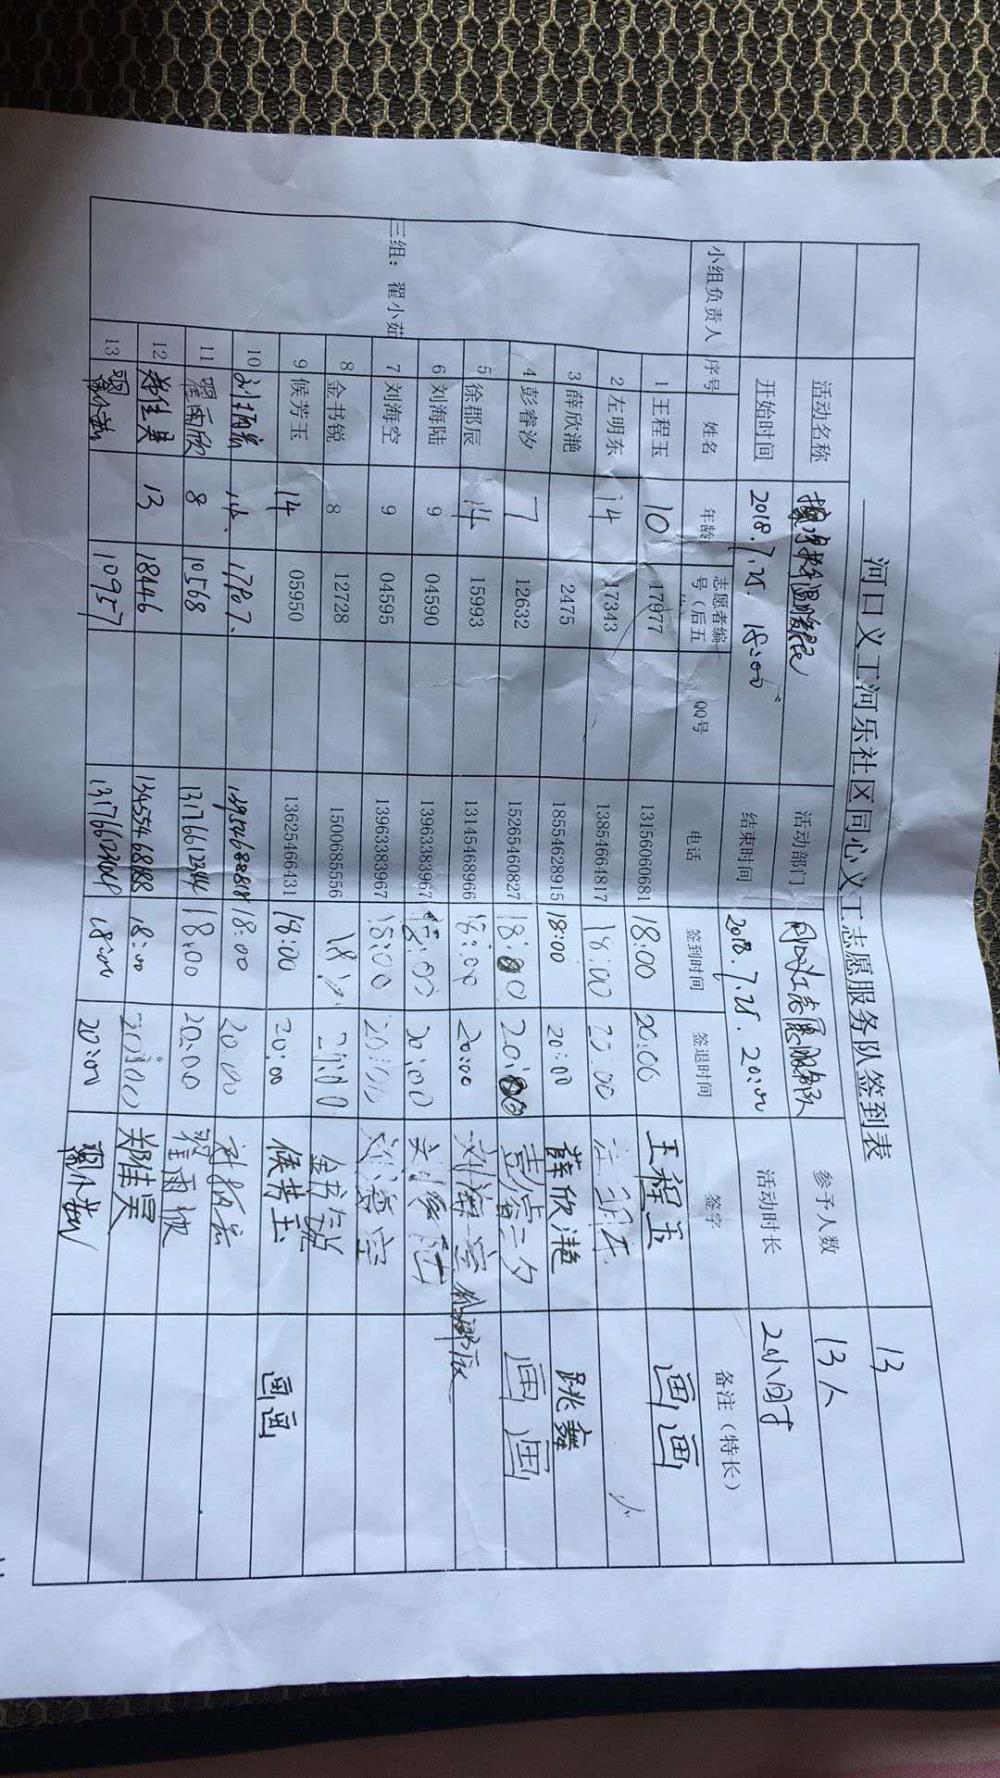 河口义工河乐社区同心义工志愿服务队签到表 13
活动名称 活动部门 同心义工志愿服务队 参予人数 13人
开始时间 2018.7.25. 18:00 结束时间 2018.7.25. 20:00 活动时长 2小时
小组负责人 序号 姓名 年龄 志愿者编号(后五 QQ号 电话 签到时间 签退时间 签字 备注(特长)
三组:翟小茹
1 王程玉 10 17977 13156060681 18:00 20:00 王程玉 画画
2 左明东 14 17343 13854664817 18:00 20:00
3 薛欣滟 2475 18554628915 18:00 20:00 薛欣滟 跳舞
4 彭睿汐 7 12632 15265460827 18:00 20:00 彭睿汐 画画
5 徐郡辰 14 15993 13145468966 18:00 20:00 徐郡辰
6 刘海陆 9 04590 13963383967 18:00 20:00 刘海陆
7 刘海空 9 04595 13963383967 18:00 20:00 刘海空
8 金书锐 8 12728 1500685556 18 金书锐
9 候芳玉 14 05950 13625466431 18:00 20:00 候芳玉 画画
10 14. 17867. 18:00 20:00
11 翟雨欣 8 10568 18:00 20:00 翟雨欣
12 郑佳昊 13 18446 13455468188 18:00 20:00 郑佳昊
13 翟小茹 10957 18:00 20:00 翟小茹